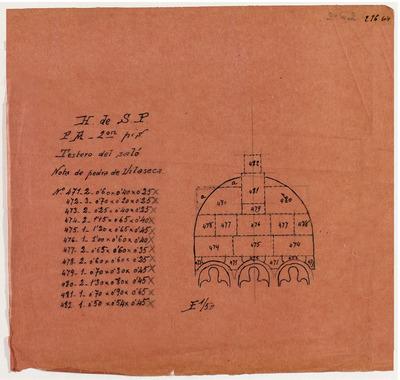 216.64
H. de S. P
P. A - 2on pis
Testero del saló
Nota de pedra de Vilaseca
Nº 471. 2. 0'60 x 0'40 x 0'25 x
472. 3. 0'70 x 0'20 x 0'25 x
473. 2. 0'25 x 0'40 x 0'25 x
474. 2. 1'15 x 0'65 x 0'40 x
475. 1. 1'20 x 0'65 x 0'45 x
476. 1. 1'00 x 0'60 x 0'40
477. 2. 0'65 x 0'60 x 0'25
478. 2. 0'60 x 0'60 x 0'25 x
479. 1. 0'70 x 0'30 x 0'45 x
480. 2. 1'30 x 0'80 x 0'45 x
481. 1. 0'70 x 0'90 x 0'45 x
482. 1. 0'50 x 0'54 x 0'45 x
482
a
a
481
480
480
479
478
477
476
477
478
474
475
474
471
471
E 1/50